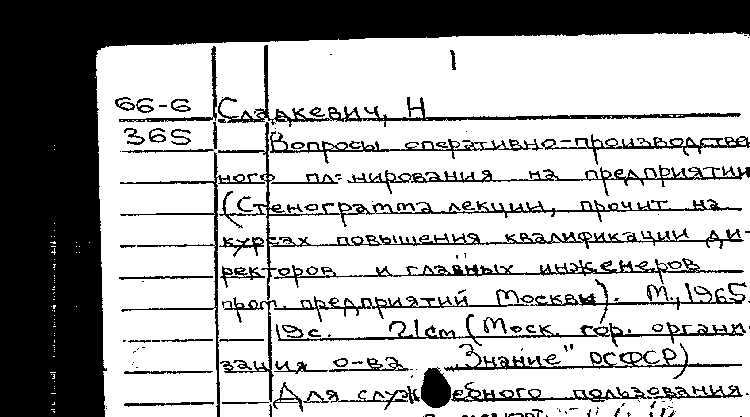 1
66-6 Сладкевич, Н
365 Вопросы оперативно-производстве
ного пл-нирования на предприятии
(Стенограмма лекции, прочит на
курсах повышения квалификации ди-
ректоров и главных инженеров
пром. предприятий Москвы). М., 1965
19с. 21cm (Моск. гор. органи
зация о-ва „Знание" РСФСР)
Для служебного пользования